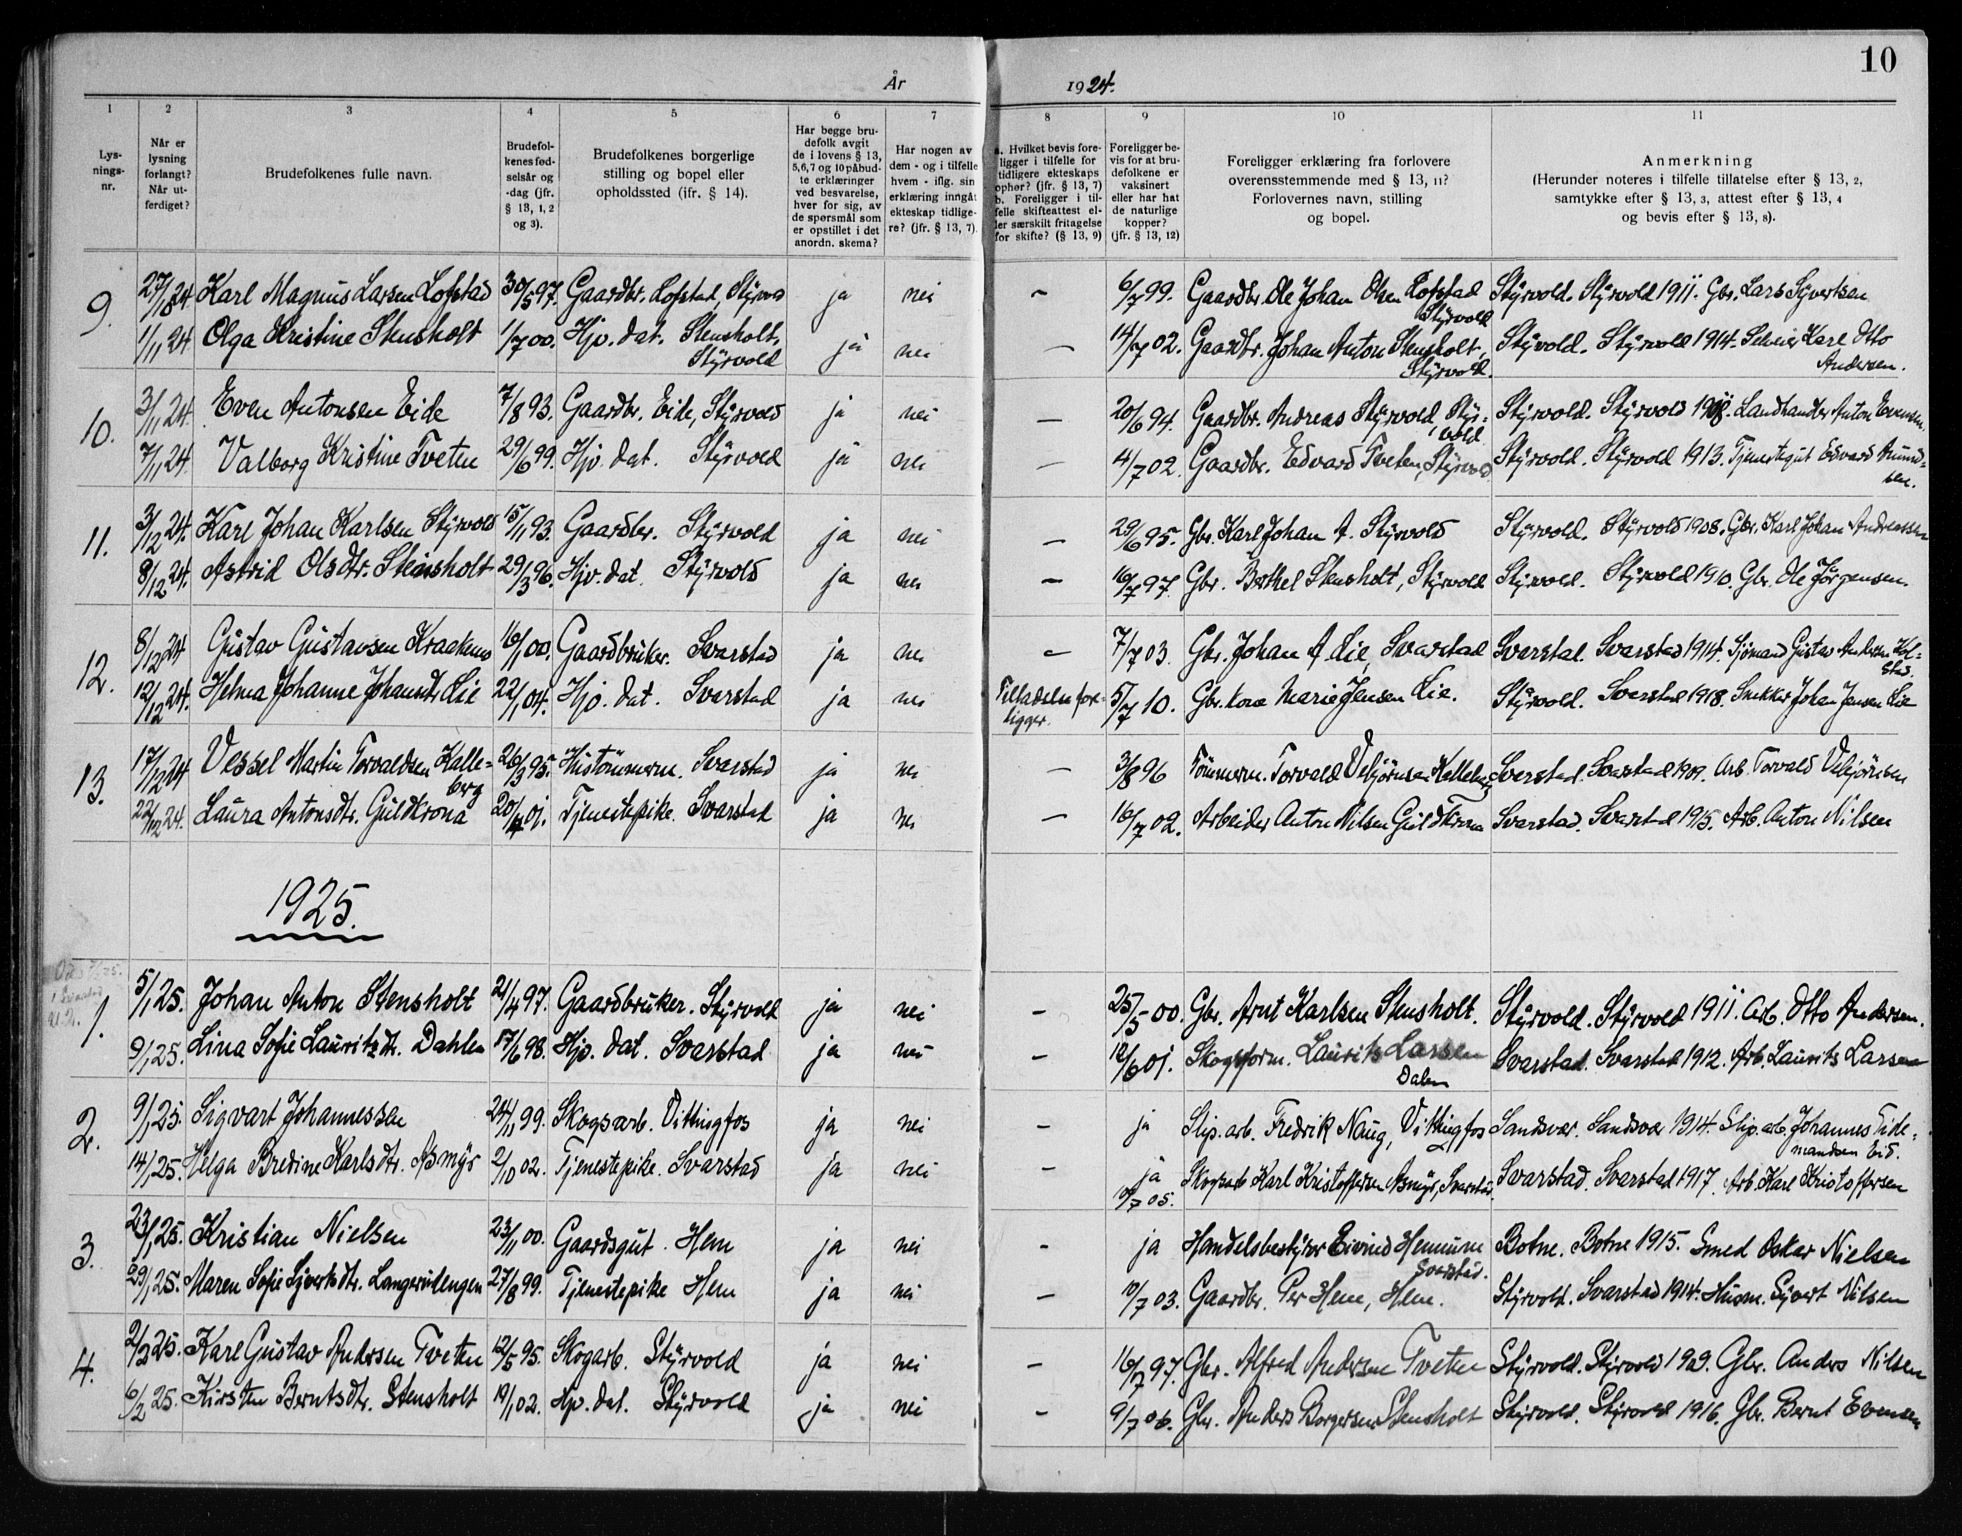 År 1924. 10
1 2 3 4 5 6 7 8 9 10 11
Lysningsnr.
Når er lysning forlangt? Når utferdiget?
Brudefolkenes fulle navn.
Brudefolkenes fødselsår og -dag (jfr. § 13, 1, 2 og 3).
Brudefolkenes borgerlige stilling og bopel eller opholdssted (ifr. § 14).
Har begge brudefolk avgit de i lovens § 13, 5,6,7 og 10 påbudte erklæringer ved besvarelse, hver for sig, av de spørsmål som er opstillet i det anordn. skema?
Har nogen av dem - og i tilfelle hvem - iflg. sin erklæring inngåt ekteskap tidligere? (jfr. § 13, 7).
a. Hvilket bevis foreligger i tilfelle for tidligere ekteskaps ophør? (jfr. § 13, 7) b. Foreligger i tilfelle skifteattest eller særskilt fritagelse for skifte? (§ 13, 9)
Foreligger bevis for at brudefolkene er vaksinert eller har hat de naturlige kopper? (jfr. § 13, 12)
Foreligger erklæring fra forlovere overensstemmende med § 13, 11? Forlovernes navn, stilling og bopel.
Anmerkning (Herunder noteres i tilfelle tillatelse efter § 13, 2, samtykke efter § 13, 3, attest efter § 13, 4 og bevis efter § 13, 8).
9. 27/10 24 Karl Magnus Larsen Lofstad 30/5 97. Gaardbr. Lofstad, Styrvold ja nei – 6/7 99. Gaardbr. Ole Johan Olsen Lofstad Styrvold Styrvold. Styrvold 1911. Gbr. Lars Syvertsen
1/11 24 Olga Kristine Stensholt 1/7 00. Hjv. dat. Stensholt, Styrvold ja nei – 14/7 02. Gaardbr. Johan Anton Stensholt, Styrvold. Styrvold. Styrvold 1914. Karl Otto Andersen.
10. 3/11 24. Even Antonsen Eide 7/8 93. Gaardbr. Eide, Styrvold ja nei – 20/6 94. Gaardbr. Andreas Styrvold, Styrvold Styrvold. Styrvold Landhandler Anton Evensen
7/11 24. Valborg Kristine Tveten 29/6 99. Hjv. dat. Styrvold ja nei – 4/7 02. Gaardbr. Edvard Tveten, Styrvold Styrvold. Styrvold 1913. Tjenestegut Edvard Amundsen.
11. 3/12 24. Karl Johan Karlsen Styrvold 15/11 93. Gaardbr. Styrvold ja nei – 29/6 95. Gbr. Karl Johan A. Styrvold Styrvold. Styrvold 1908. Gbr. Karl Johan Andreassen
8/12 24. Astrid Olsdtr. Stensholt 29/3 96. Hjv. dat. Styrvold ja nei – 16/7 97. Gbr. Berthel Stensholt, Styrvold Styrvold. Styrvold 1910. Gbr. Ole Jörgensen.
12. 8/12 24 Gustav Gustavsen Kraakenes 16/1 00. Gaardbruker. Svarstad ja nei – 7/7 03. Gbr. Johan A Lie, Svarstad Svarstad. Svarstad 1914. Sjömand Gustav Andersen
12/12 24. Helma Johanne Johansdtr. Lie 22/1 04. Hjv. dat. Svarstad ja nei Tilladelse foreligger. 5/7 10. Gbr. kone Marie Jensen Lie. Styrvold. Svarstad 1918. Snekker Johan Jensen Lie
13. 17/12 24 Vessel Martin Torvaldsen Kalleberg 26/3 95. Hustömmerm. Svarstad ja nei – 3/8 96 Tömmerm. Torvald Vebjörnsen Kalleberg Svarstad. Svarstad 1909. Arb. Torvald Vebjörnsen
22/12 24. Laura Antonsdtr. Guldkrona 20/4 01. Tjenestepike. Svarstad ja nei – 16/7 02. Arbeider Anton Nilsen Guldkrona Svarstad. Svarstad 1915. Arb. Anton Nilsen
1925.
1. 5/1 25. Johan Anton Stensholt 21/4 97. Gaardbruker. Styrvold ja nei – 25/5 00. Gbr. Arnt Karlsen Stensholt. Styrvold. Styrvold 1911. Arb. Otto Andersen.
9/1 25. Lina Sofie Lauritzdtr. Dahlen 17/6 98. Hjv. dat. Svarstad ja nei – 12/6 01. Skogsform. Laurits Larsen Dalen Svarstad. Svarstad 1912. Arb. Laurits Larsen
2. 9/1 25. Sigvart Johannessen 24/11 99. Skogsarb. Vittingfos ja nei – ja Slip.arb. Fredrik Naug, Vittingfos Sandsvær. Sandsvær 1914. Slip.arb. Johannes Tidemandsen Eid.
14/1 25. Helga Bredine Karlsdtr. Asmyr 2/10 02. Tjenestepike. Svarstad ja nei – ja /7 05. Skogsarb. Karl Kristoffersen Asmyr, Svarstad. Svarstad. Svarstad 1917. Arb. Karl Kristoffersen
3. 23/1 25. Kristian Nielsen 23/11 00. Gaardsgut. Hem ja nei – ja Handelsbestyrer Eivind Hemum Svarstad. Botne. Botne 1915. Smed Oskar Nielsen
29/1 25. Maren Sofie Syvertsdtr. Langerudengen 27/8 99. Tjenestepike Hem ja nei – 10/7 03. Gaardbr. Per Hem, Hem. Styrvold. Svarstad 1914. Husm. Syvert Nilsen
4. 2/2 25. Karl Gustav Andersen Tveten 12/5 95. Skogarb. Styrvold ja nei – 16/7 97. Gbr. Alfred Andersen Tveten Styrvold. Styrvold 1909. Gbr. Anders Nilsen
6/2 25. Kirsten Berntsdtr. Stensholt 19/1 02. Hjv. dat. Styrvold ja nei – 9/7 06. Gbr. Anders Borgersen Stensholt Styrvold. Styrvold 1916. Gbr. Bernt Evensen